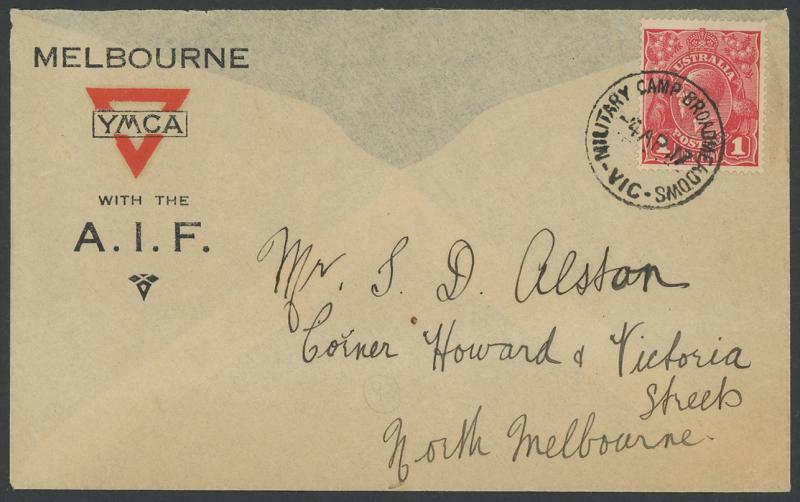 MELBOURNE
YMCA
WITH THE
A. I. F.
AUSTRALIA
POSTAGE
1 1
MILITARY CAMP BROADMEADOWS
-4 AP 17
-VIC-
Mr. S. D. Alston
Corner Howard & Victoria
Streets
North Melbourne.